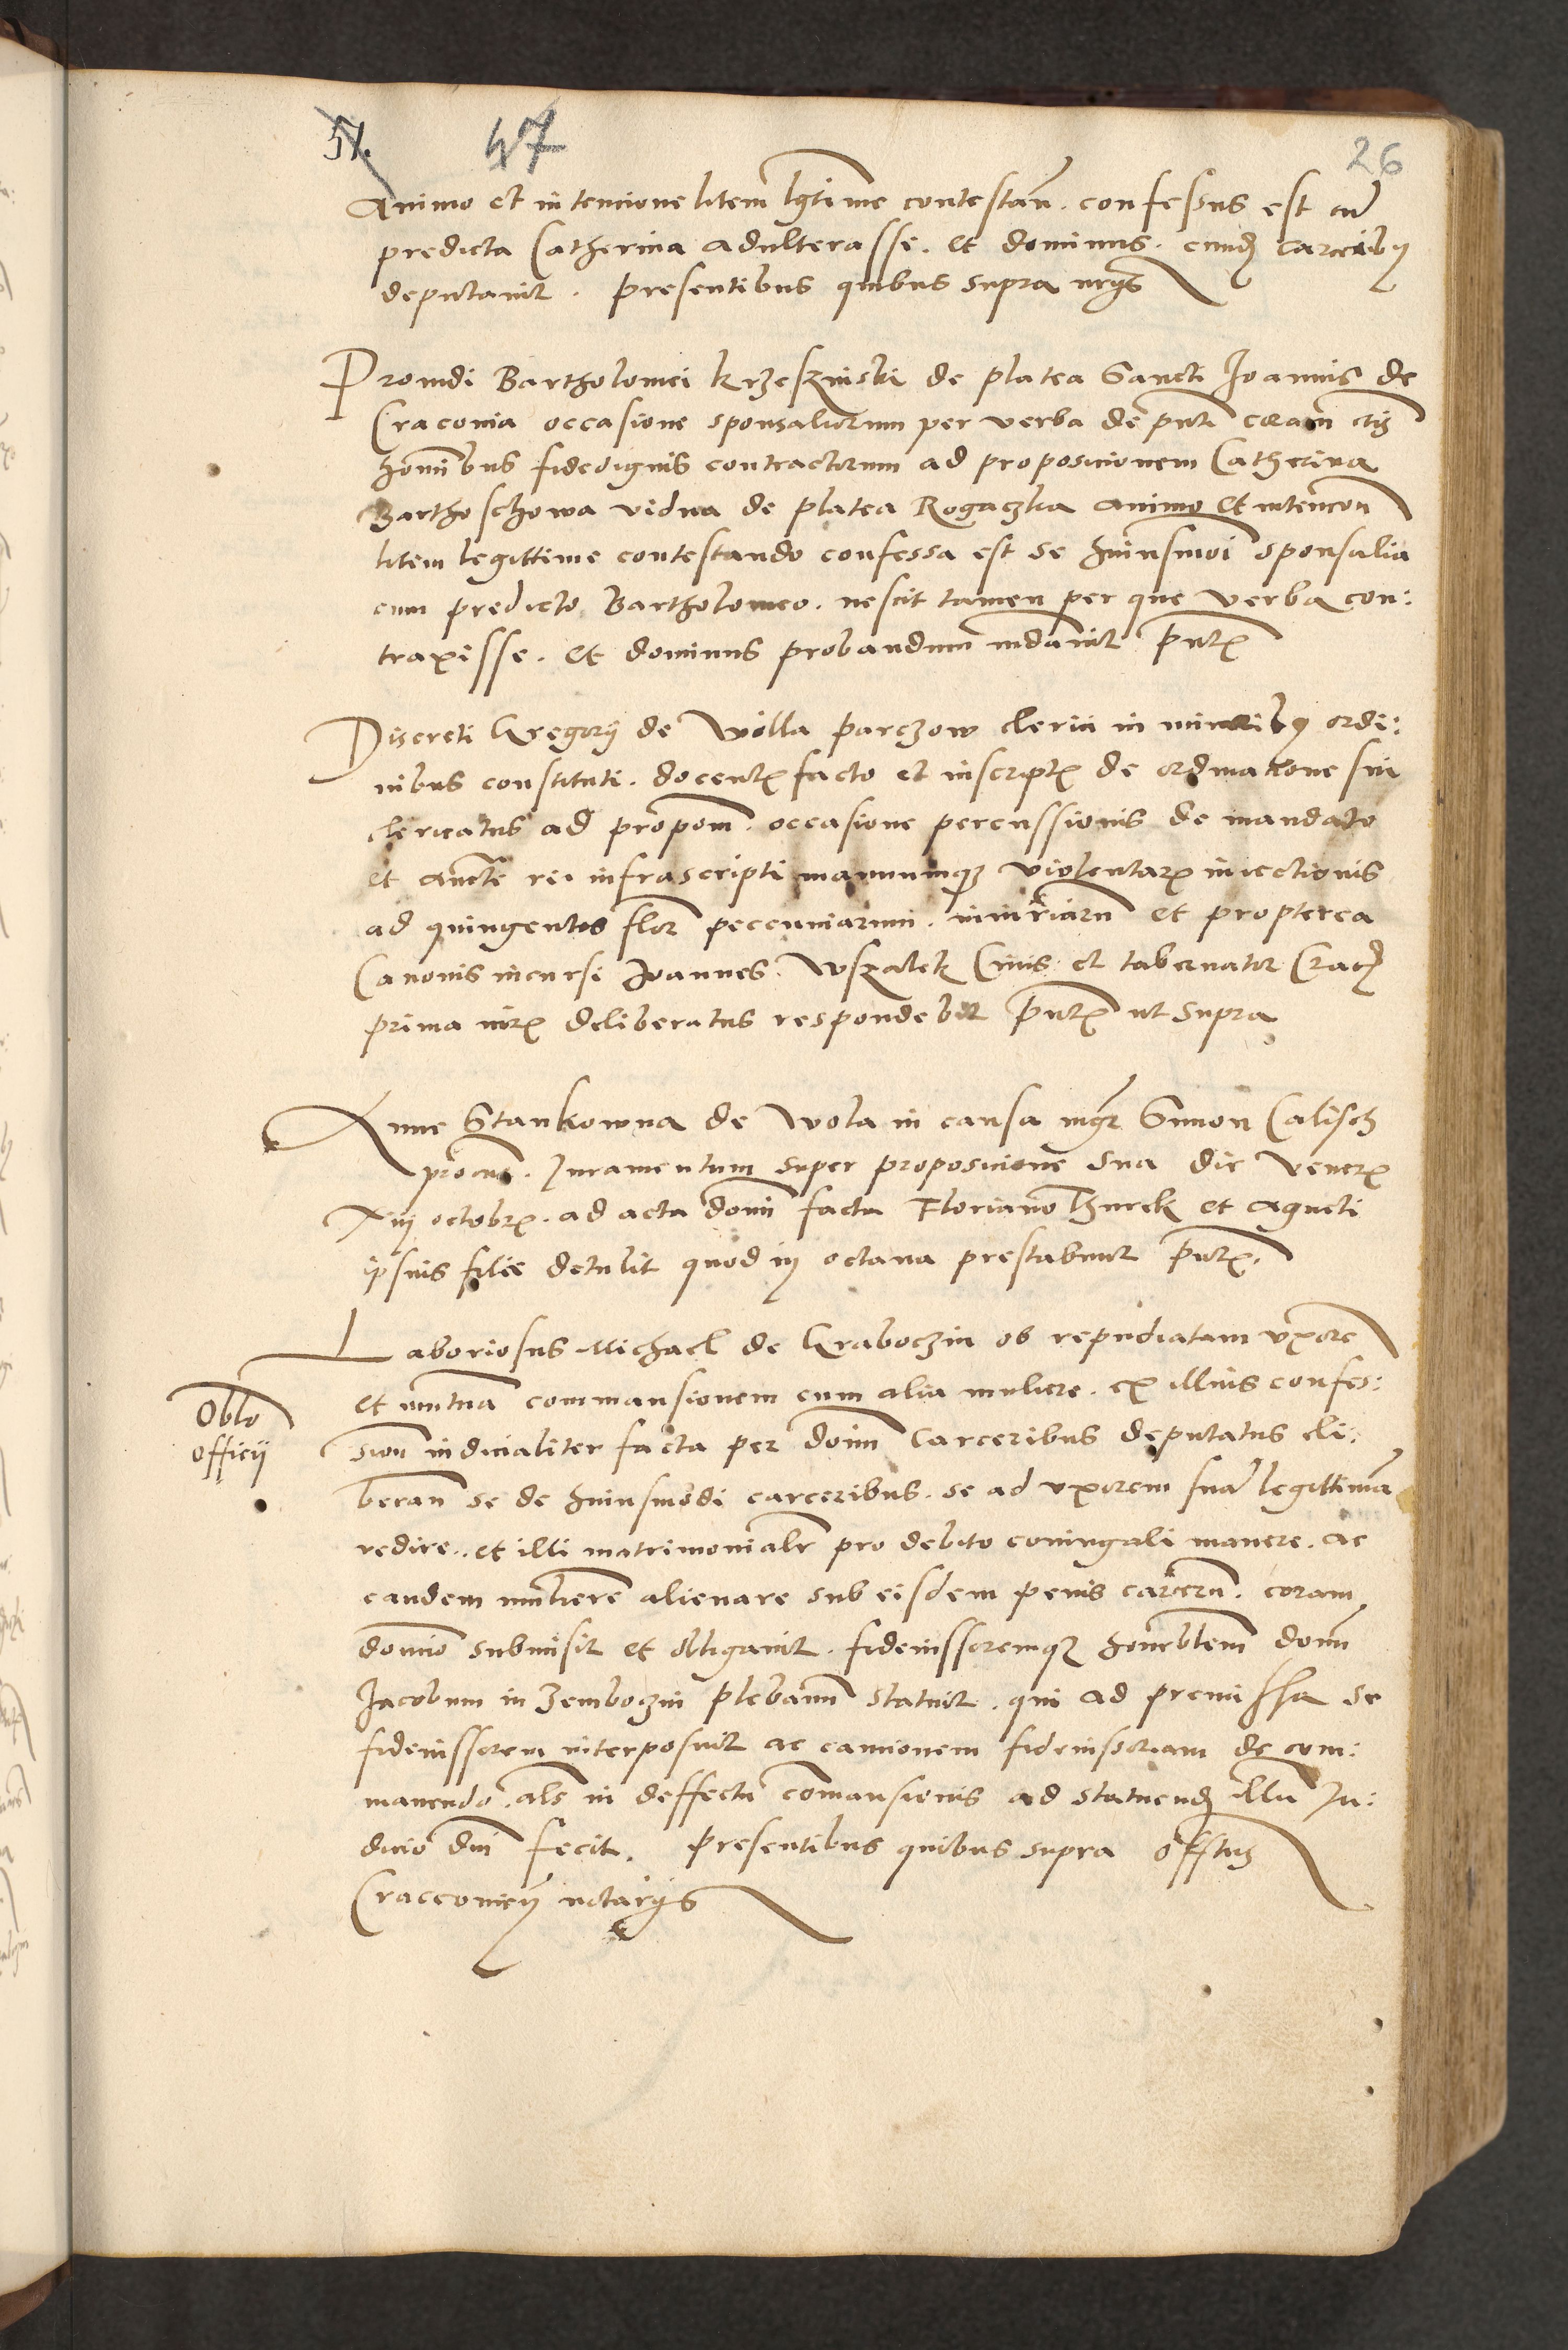 57.
47
26
animo et intencione litem lgtime contestan. confessus est cu
predicta Catherina adulterasse. et dominus. eund carceribus
deputavit. presentibus quibus supra
Providi Bartholomei krzeskinski de platea Sancti Joannis de
Cracovia occasione sponsaliorum per verba de pnti coram
hominibus fidedignis contractorum ad proposicionem Catherina
Barthoschowa vidua de platea Rogaczka animo et intencion
litem legittime contestando confessa est se huiusmoi sponsalia
cum predicto Bartholomeo. nescit tamen per que verba con:
traxisse. et dominus probandum mdavit pntx
Discreti Gregorij de Wolla parczow clerici in minoribus ordi:
nibus constituti. docentx facto et inscriptx de ordinatione sui
clericatus ad propom. occasione percussionis de mandato
et aucte rei infrascripti manuumq violentarx iniectionis
ad quingentos flor peccuniarum. iniuriaru et propterea
Canonis incursi Joannes Wszalek Civis et tabernator Crac
prima iurx deliberatus respondebit pntx ut supra
Anne Stankowna de Wola in causa mgr Simon Calisch
procur. Juramentum super proposicione sua die Venerx
xiij octobrx. ad acta domi facta Floriano Thurek et Agneti
ipsius filie detulit quod in octava prestabunt pntx.
Oblo
officij
Laboriosus Michael de Graboczin ob repudiatam uxore
et mutua commansionem cum alia muliere. ex illius confes:
sion iudicialiter facta per domi carceribus deputatus eli:
beran se de huiusmodi carceribus. se ad uxorem sua legittima
redire.. et illi matrimonialr pro debito coniugali manere. ac
eandem muliere alienare sub eisdem penis carceru. coram
domio submisit et obligavit. fideiussoremq honorblem domi
Jacobum in Zemboczin plebanu statuit. qui ad premissa se
fideiussorem interposuit ac caucionem fideiussoriam de com:
manendo. als in deffectu comansionis ad statuend illu Ju:
dicio dni fecit. presentibus quibus supra
Cracovien notarijs